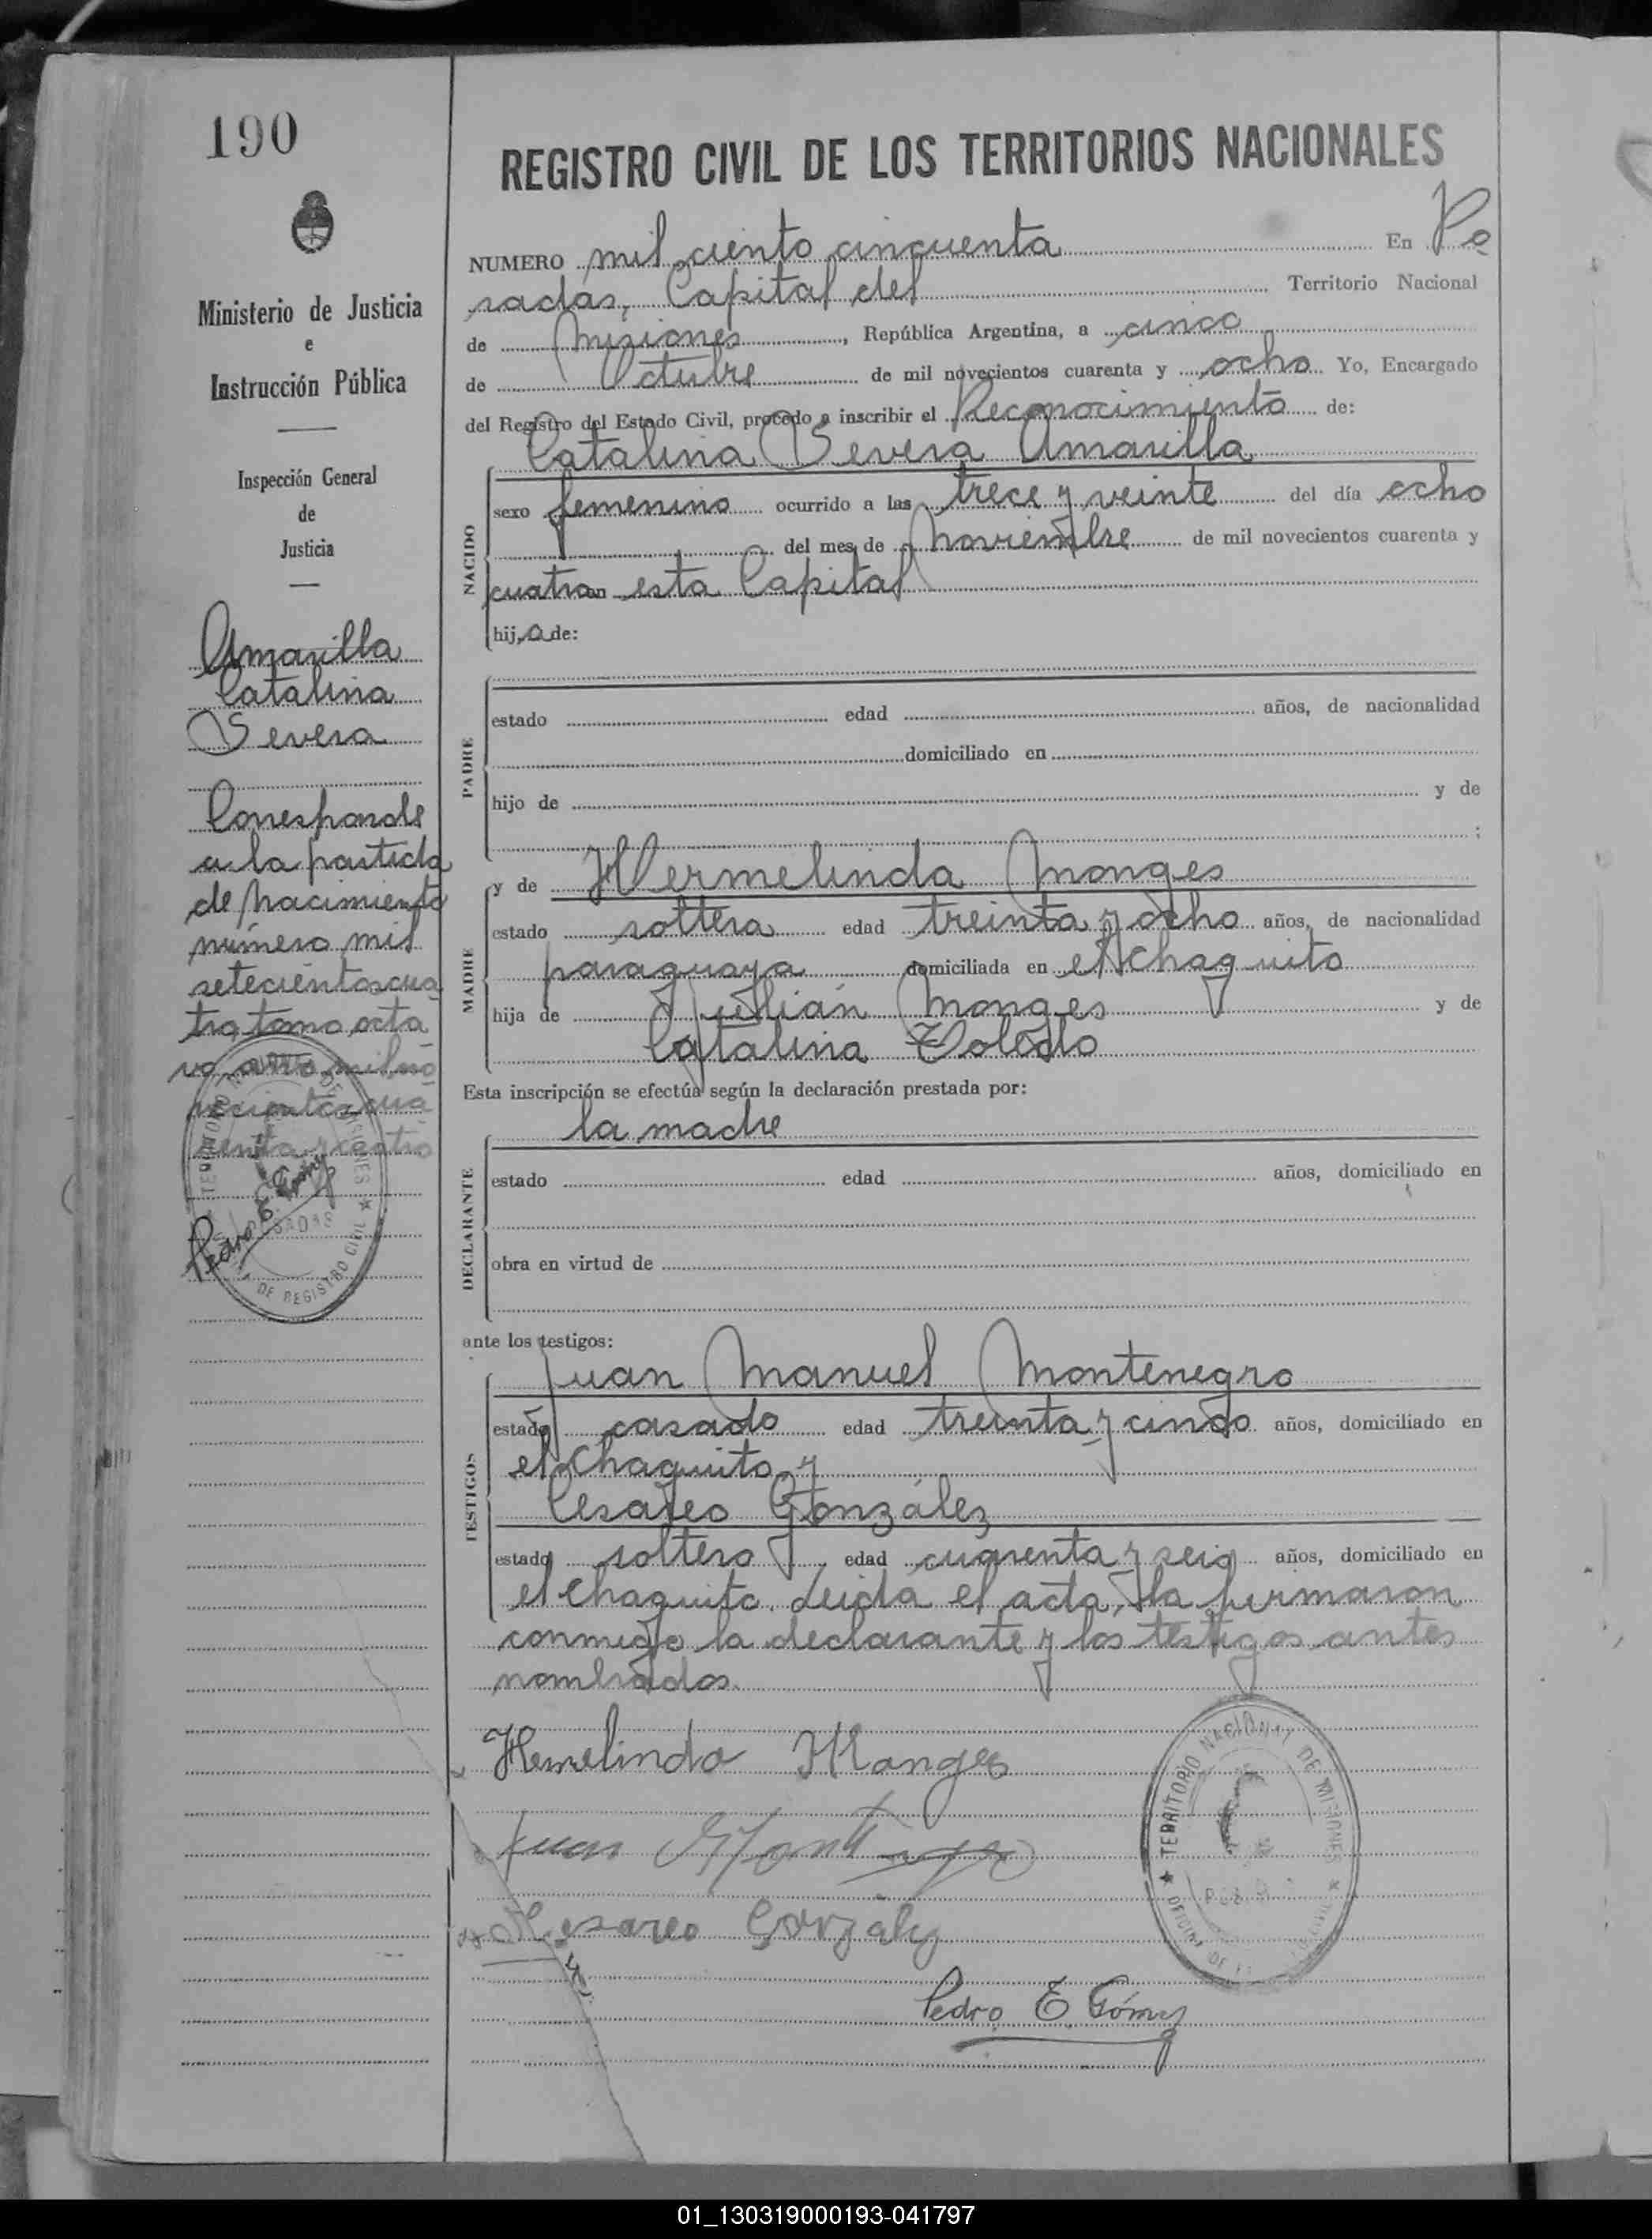 190
Ministerio de Justicia
e
Instrucción Pública
Inspección General
de
Justicia
Amarilla
Catalina
Severa
Corresponde
a la partida
de nacimiento
número mil
setecientos cua
tro, tomo octa
vo, año mil no
vecientos cua
renta y cuatro
Pedro E. Gómez
REGISTRO CIVIL DE LOS TERRITORIOS NACIONALES
NUMERO mil ciento cincuenta En Po
sadas, Capital del Territorio Nacional
de Misiones, República Argentina, a cinco
de Octubre de mil novecientos cuarenta y ocho Yo, Encargado
del Registro del Estado Civil, procedo a inscribir el Reconocimiento de:
Catalina Severa Amarilla
NACIDO
sexo femenino ocurrido a las trece y veinte del día ocho
del mes de Noviembre de mil novecientos cuarenta y
cuatro en esta Capital
hija de:
PADRE
estado edad años, de nacionalidad
domiciliado en
hijo de y de
;
MADRE
y de Hermelinda Monges
estado soltera edad treinta y ocho años, de nacionalidad
paraguaya domiciliada en el Chaquito
hija de Julián Monges y de
Catalina Toledo
Esta inscripción se efectúa según la declaración prestada por:
la madre
DECLARANTE
estado edad años, domiciliado en
obra en virtud de
ante los testigos:
Juan Manuel Montenegro
TESTIGOS
estado casado edad treinta y cinco años, domiciliado en
el Chaquito y
Cesareo González
estado soltero edad cuarenta y seis años, domiciliado en
el Chaquito. Leida el acta, la firmaron
conmigo la declarante y los testigos antes
nombrados.
Hermelinda Monges
Juan Montenegro
Cesareo Gonzalez
TERRITORIO NACIONAL DE MISIONES
OFICINA DE
Pedro E. Gómez
01_130319000193-041797